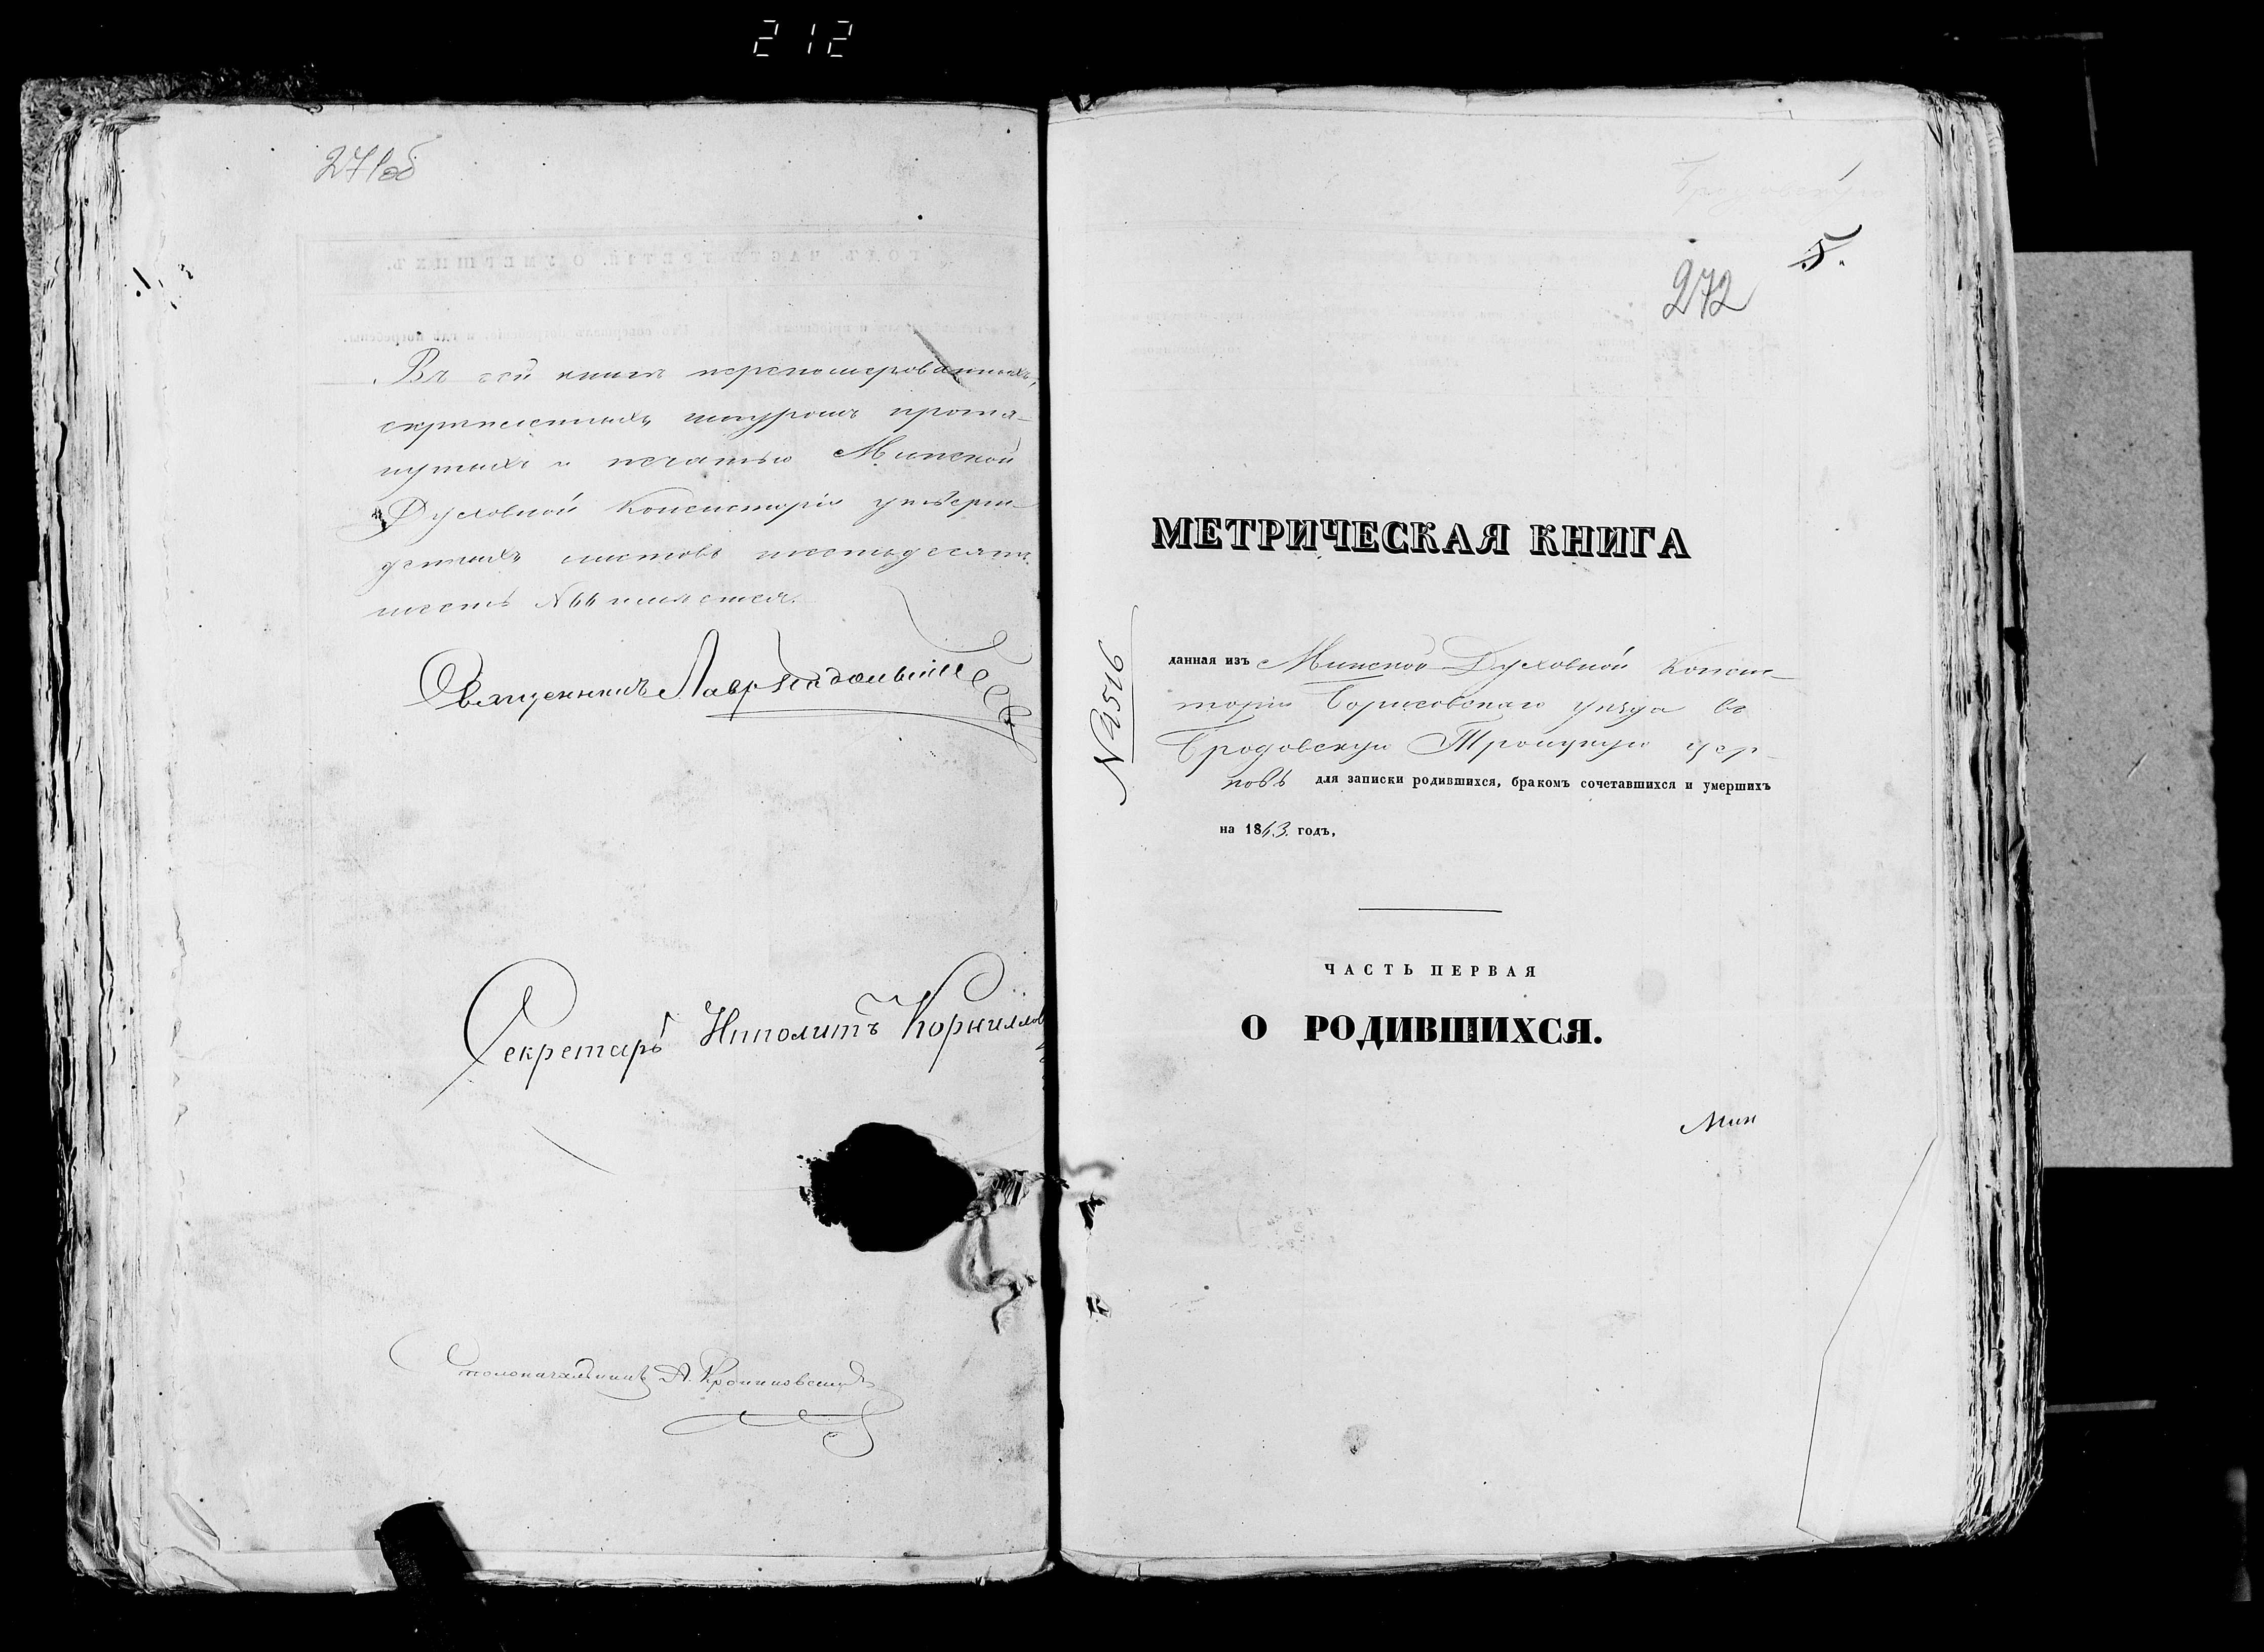 212
271об
Въ сей книгѣ перенумерованныхъ,
скрѣпленныхъ шнуромъ протя-
нутыхъ и печатью Минской
Духовной Консисторіи утверж-
денныхъ листовъ шестьдесятъ
шесть № 66 имѣется.
Священникъ Лавр
Секретарь Ипполитъ Корнилов
Столоначальникъ А.
Бродовская
5.
272
МЕТРИЧЕСКАЯ КНИГА
№ 4516
данная изъ Минской Духовной Конси-
сторіи Борисовскаго уѣзда въ
Бродовскую Троицкую цер-
ковь для записки родившихся, бракомъ сочетавшихся и умершихъ
на 1843. годъ.
ЧАСТЬ ПЕРВАЯ
О РОДИВШИХСЯ.
Мин